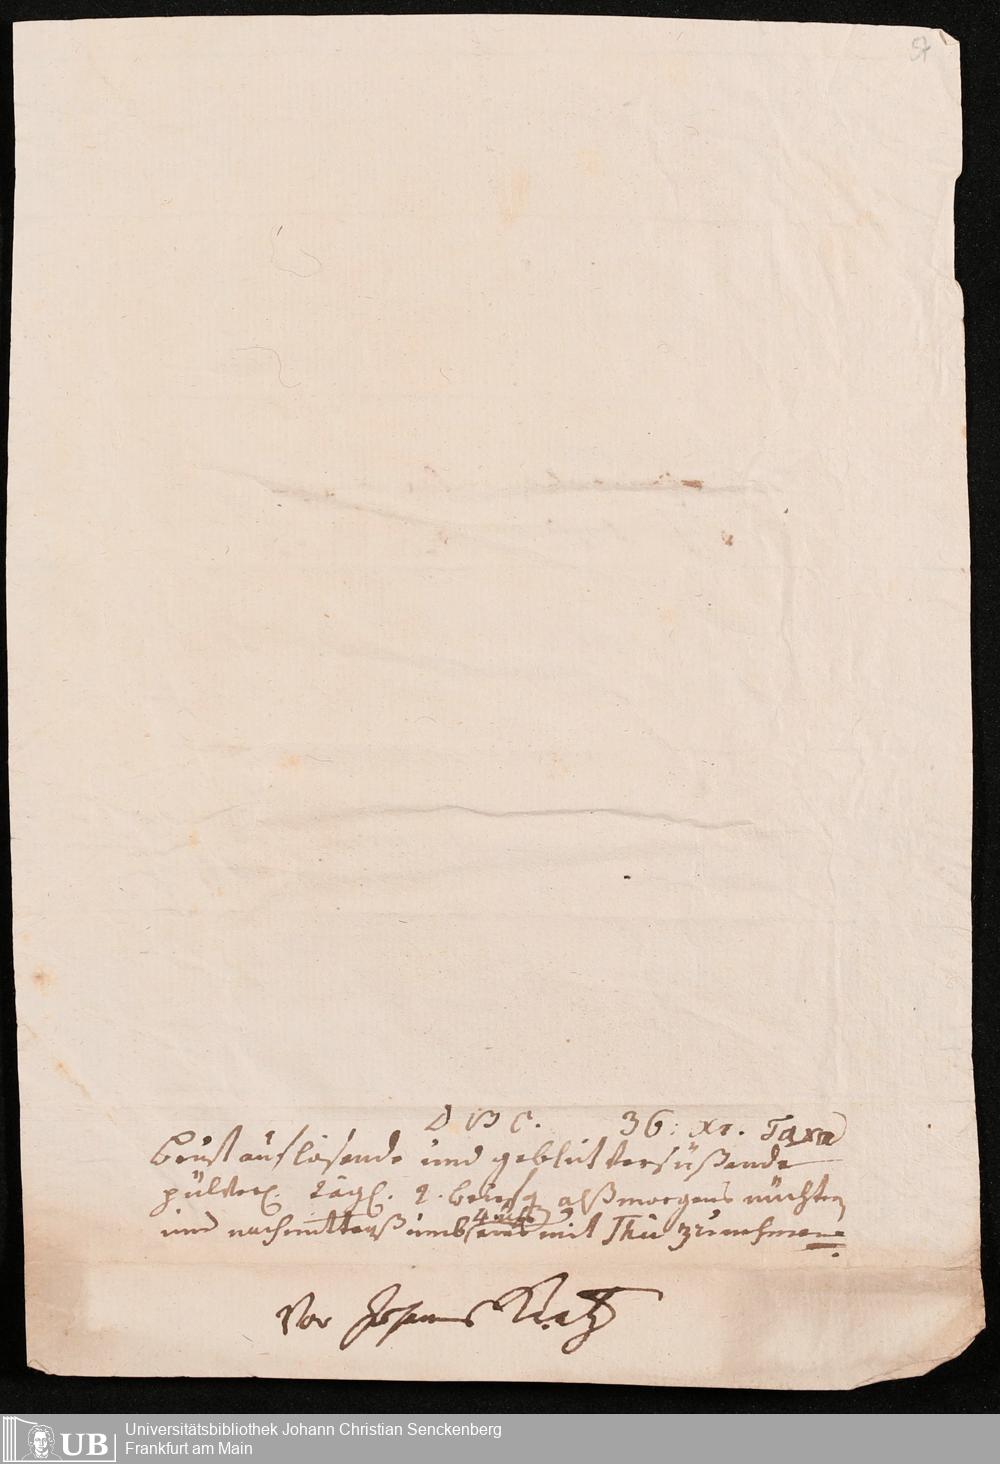 57
36: xr. Taxa
Brust auflösende und geblüt versüßende
pülver. tägl. 2. alß morgens nüchtern
und nachmittagß umb 4 uhr mit Thee zu nehmen.
Vor Johannes
UB Universitätsbibliothek Johann Christian Senckenberg
Frankfurt am Main